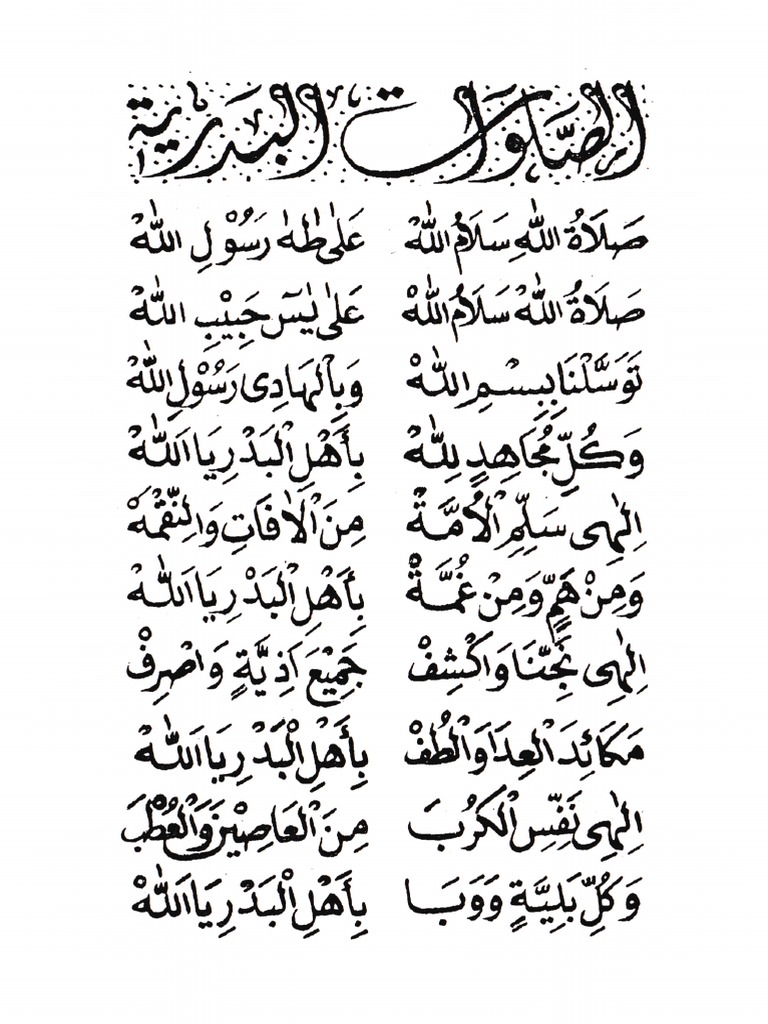 الصَّلَوَاتُ الْبَدَرِية
صَلَاةُ اللهِ سَلَامُ اللهْ عَلٰى طٰهٰ رَسُوْلِ اللهْ
صَلَاةُ اللهْ سَلَامُ اللهْ عَلٰى يٰسٓ حَبِيْبِ اللهْ
تَوَسَّلْنَا بِبِسْمِ اللهْ وَبِالْهَادِى رَسُوْلِ اللهْ
وَكُلِّ مُجَاهِدٍ لِلهْ بِأَهْلِ الْبَدْرِ يَا اَللهْ
اِلٰهِى سَلِّمِ الْاُمَّةْ مِنَ الْاٰفَاتِ وَالنِّقْمَةْ
وَمِنْ هَمٍّ وَمِنْ غُمَّةْ بِأَهْلِ الْبَدْرِ يَا اَللهْ
اِلٰهِى نَجِّنَا وَاكْشِفْ جَمِيْعَ اَذِيَّةٍ وَاصْرِفْ
مَكَائِدَ الْعِدَا وَالْطُفْ بِأَهْلِ الْبَدْرِ يَا اَللهْ
اِلٰهِى نَفِّسِ الْكُرَبَ مِنَ الْعَاصِيْنَ وَالْعُطْبَ
وَكُلِّ بَلِيَّةٍ وَوَبَا بِأَهْلِ الْبَدْرِ يَا اَللهْ